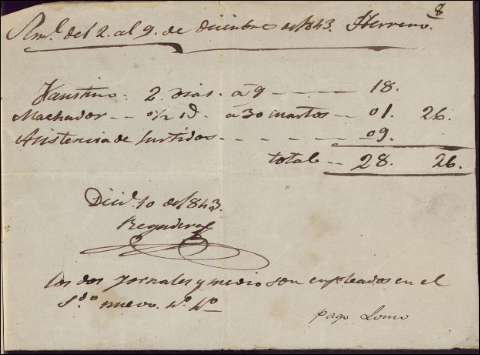 8
Sem.ª del 2. al 9. de Diciembre de 1843. Herrero.
Faustino. 2 dias. á 9 - - - - 18.
Machador - - 0½ id. á 30 cuartos - - 01. 26.
Asistencia de surtidos - - - - 09.
total - - 28. 26.
Dici.e 10 de 1843.
Los dos jornales y medio son empleados en el
nuevo
pago Lomo